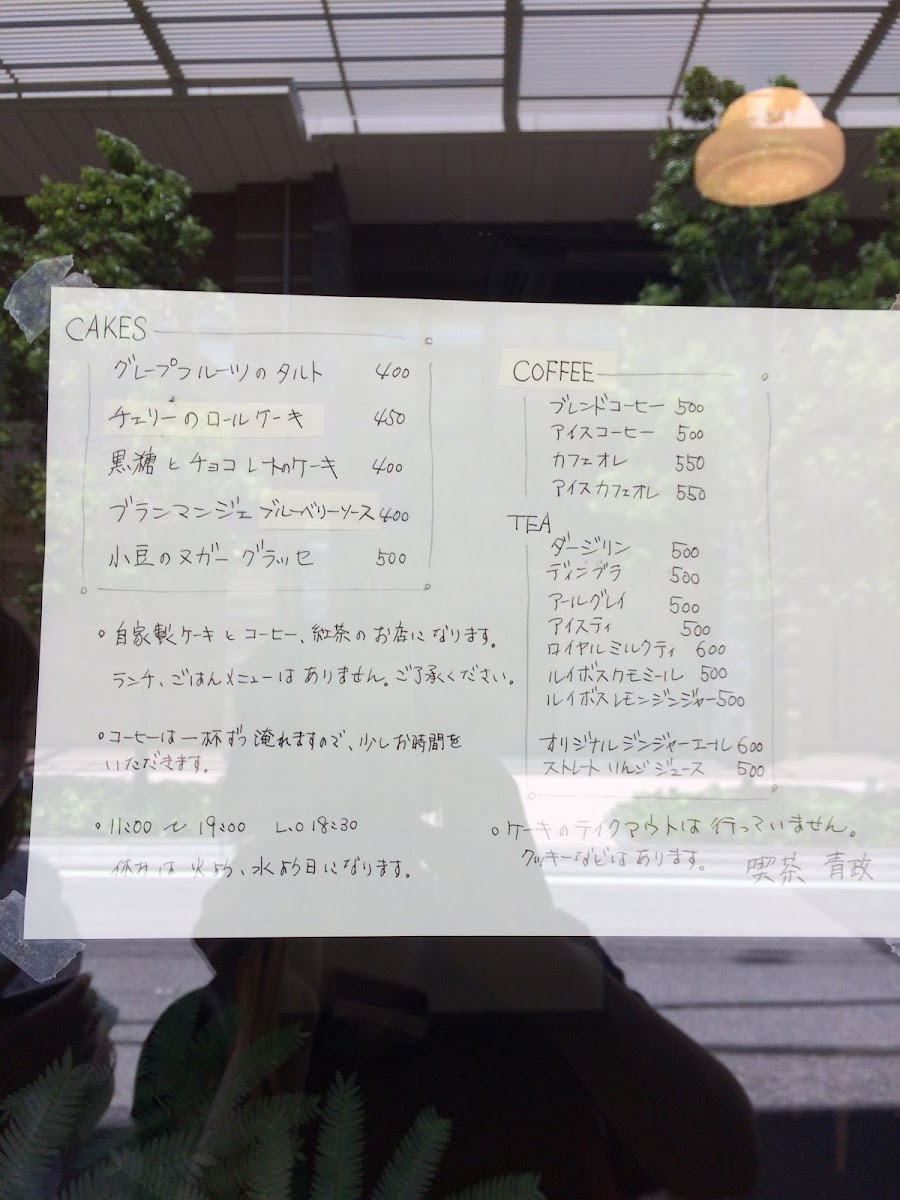 CAKES
グレープフルーツのタルト 400
チェリーのロールケーキ 450
黒糖とチョコレートのケーキ 400
ブランマンジェ ブルーベリーソース 400
小豆のヌガー グラッセ 500
。自家製ケーキとコーヒー、紅茶のお店になります。
ランチ、ごはんメニューはありません。ご了承ください。
。コーヒーは一杯ずつ淹れますので、少しお時間を
いただきます。
。11:00 〜 19:00 L.O 18:30
休みは火よう、水よう日になります。
COFFEE
ブレンドコーヒー 500
アイスコーヒー 500
カフェオレ 550
アイスカフェオレ 550
TEA
ダージリン 500
ディンブラ 500
アールグレイ 500
アイスティ 500
ロイヤルミルクティ 600
ルイボスカモミール 500
ルイボスレモンジンジャー 500
オリジナルジンジャーエール 600
ストレートりんごジュース 500
。ケーキのテイクアウトは行っていません。
クッキーなどはあります。
喫茶 青政